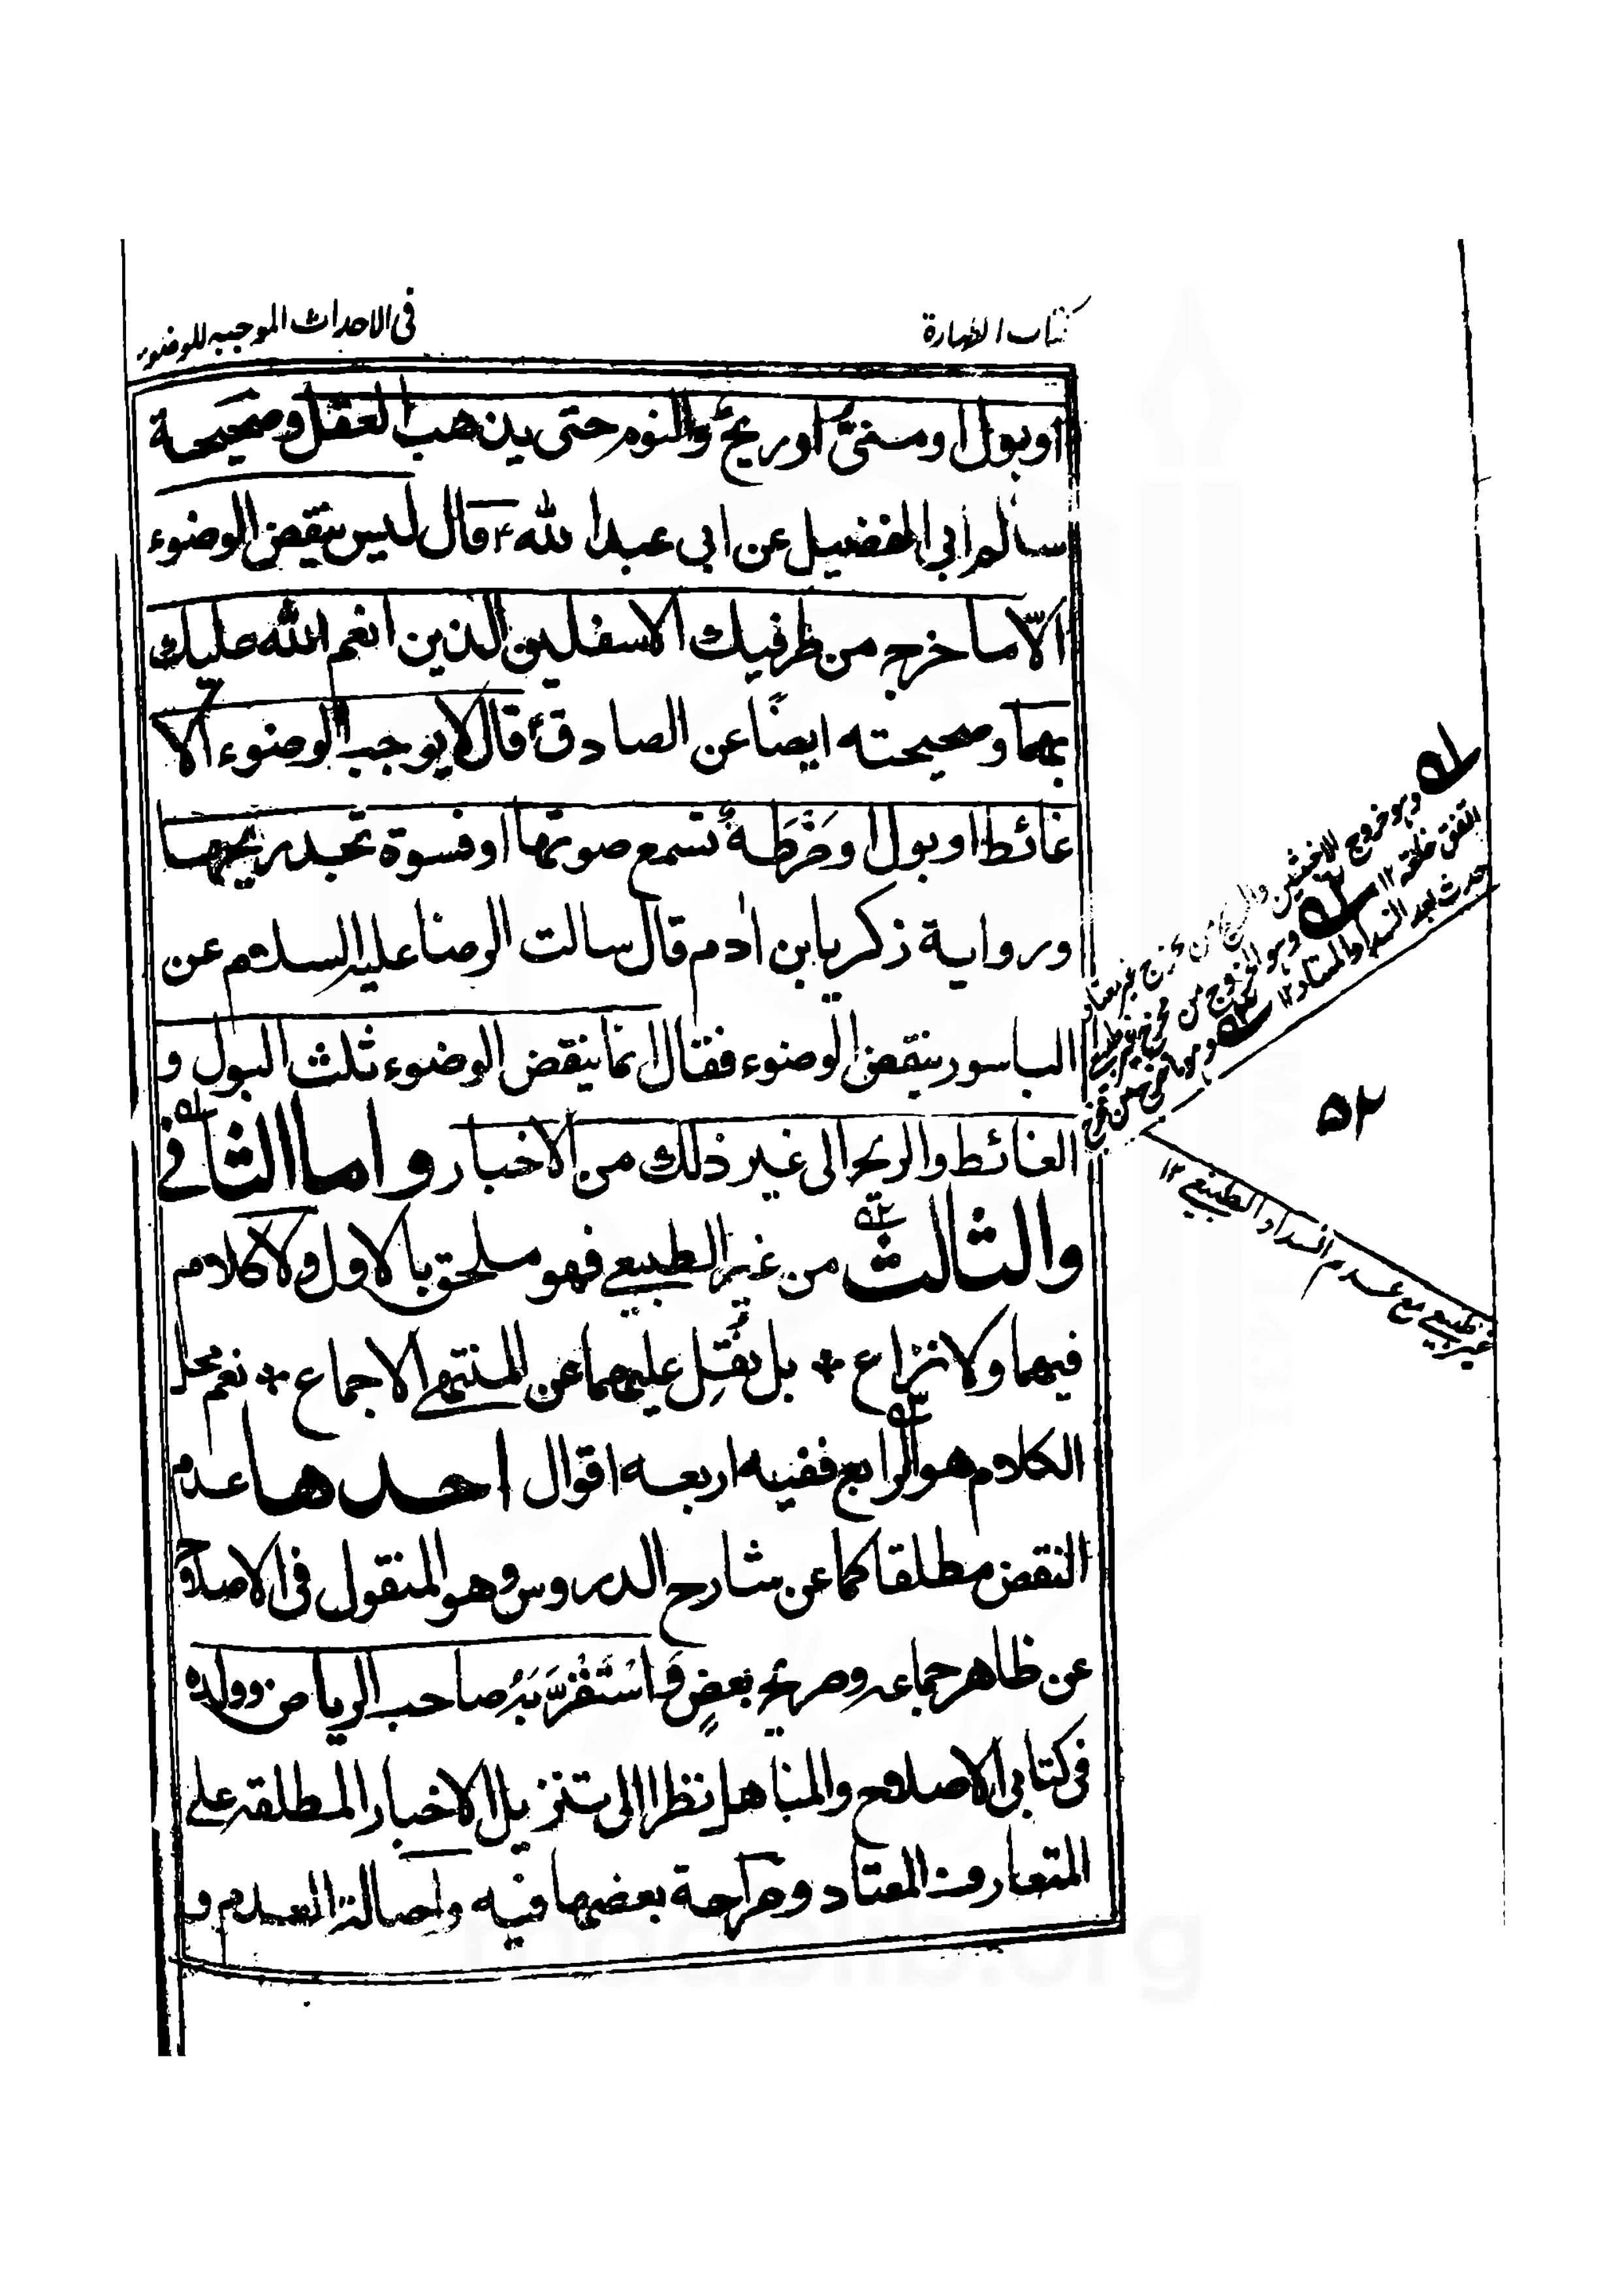 كتاب الطهارة
فى الاحداث الموجبه للوضوء
اوبول او منىّ او ريح والنوم حتى يذهب العقل وصحيحة
سالم ابى الفضيل عن ابى عبد الله ع قال ليس ينقض الوضوء
الاّ ما خرج من طرفيك الاسفلين الذين انعم الله عليك
بهما وصحيحته ايضًا عن الصادق ع قال لا يوجب الوضوء الا
غائط او بول او ضَرْطَةٌ تسمع صوتها او فسوة تجد ريحها
ورواية زكريا بن اٰدم قال سالت الرضا عليه السلام عن
الباسور ينقض الوضوء فقال انما ينقض الوضوء ثلث البول و
الغائط والريح الى غير ذلك من الاخبار واما الثانى
والثالث من غير الطبيعى فهو ملحق بالاول ولا كلام
فيهما ولا نزاع * بل نُقِل عليهما عن المنتهى الاجماع * نعم محل
الكلام هو الرابع ففيه اربعه اقوال احدها عدم
النقض مطلقا كما عن شارح الدروس وهو المنقول فى الاصلاح
عن ظاهر جماعه وصريح بعضٍ وَاسْتَقْرَبَهُ صاحب الرياض وولده
فى كتابى الاصلاح والمناهل نظرا الى تنزيل الاخبار المطلقه على
المتعارف المعتاد وصراحة بعضها فيه واصالة العدم و
٥١ وهو خروج الاخبثين والريح من مخرج غير معتاد
اتفق خلقة ١٢ ٥٢ وهو الخروج من مخرج غير طبيعى
حدث بعد انسداد المعتاد ١٢ ٥٣ وهو ما خرج من مخرج
غير طبيعى مع عدم انسداد الطبيعى ١٢
٥٢